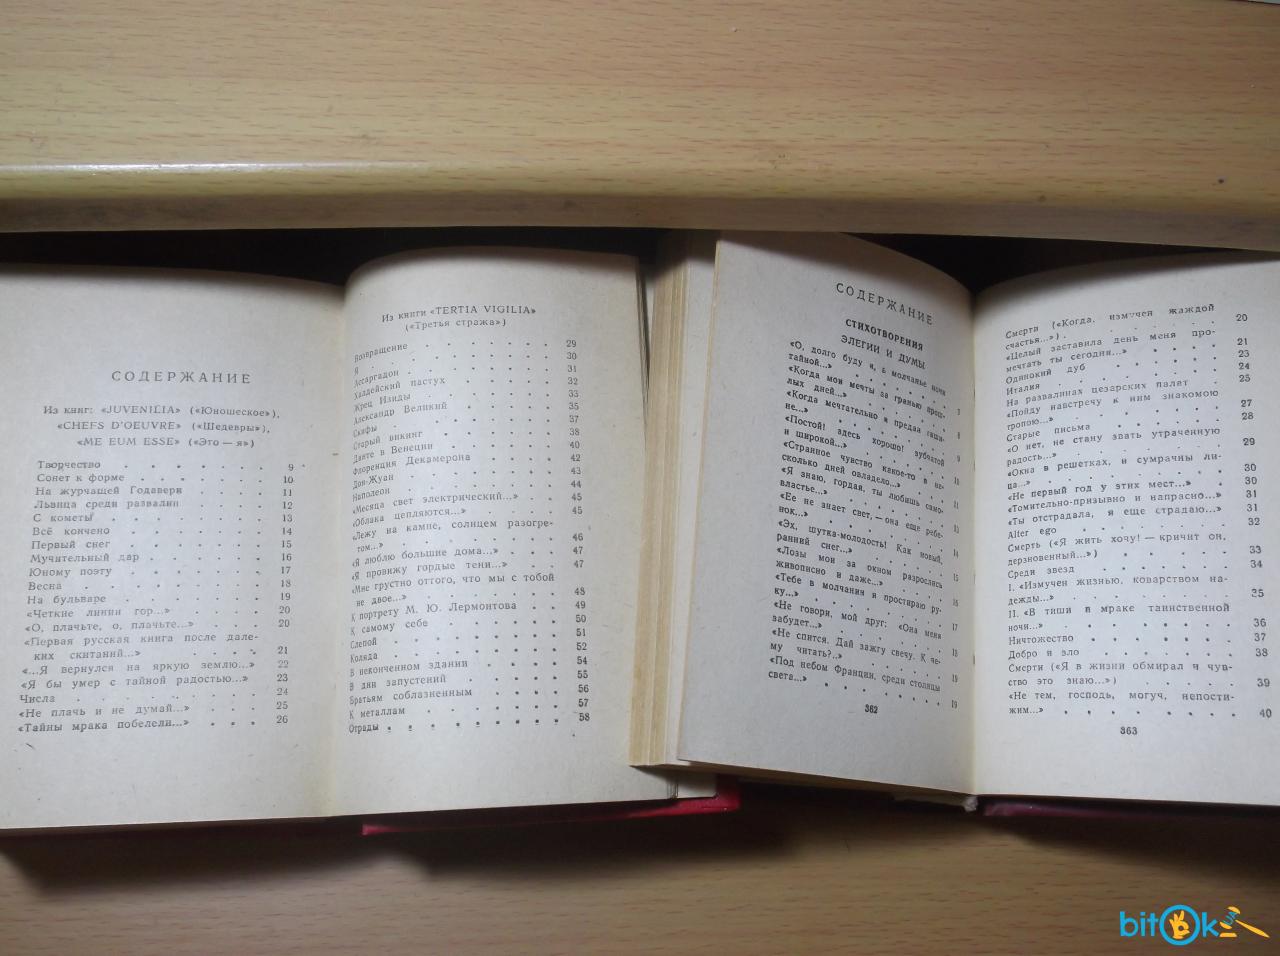 СОДЕРЖАНИЕ
Из книг: «JUVENILIA» («Юношеское»),
«CHEFS D'OEUVRE» («Шедевры»),
«ME EUM ESSE» («Это — я»)
Творчество . . . . . . . 9
Сонет к форме . . . . . . 10
На журчащей Годавери . . . . 11
Львица среди развалин . . . . 12
С кометы . . . . . . . 13
Всё кончено . . . . . . . 14
Первый снег . . . . . . . 15
Мучительный дар . . . . . 16
Юному поэту . . . . . . . 17
Весна . . . . . . . . . 18
На бульваре . . . . . . . 19
«Четкие линии гор...» . . . . 20
«О, плачьте, о, плачьте...» . . . 20
«Первая русская книга после дале-
ких скитаний...» . . . . . 21
«...Я вернулся на яркую землю...» 22
«Я бы умер с тайной радостью...» 23
Числа . . . . . . . . . 24
«Не плачь и не думай...» . . . . 25
«Тайны мрака побелели...» . . . 26
Из книги «TERTIA VIGILIA»
(«Третья стража»)
Возвращение . . . . . . . 29
Я . . . . . . . . . 30
Ассаргадон . . . . . . . 31
Халдейский пастух . . . . . 32
Жрец Изиды . . . . . . . 33
Александр Великий . . . . . 35
Скифы . . . . . . . . 37
Старый викинг . . . . . . 38
Данте в Венеции . . . . . 40
Флоренция Декамерона . . . . 42
Дон-Жуан . . . . . . . 43
Наполеон . . . . . . . 44
«Месяца свет электрический...» . . 45
«Облака цепляются...» . . . . 45
«Лежу на камне, солнцем разогре-
том...» . . . . . . . 46
«Я люблю большие дома...» . . . 47
«Я провижу гордые тени...» . . . 47
«Мне грустно оттого, что мы с тобой
не двое...» . . . . . . . 48
К портрету М. Ю. Лермонтова . . 49
К самому себе . . . . . . 50
Слепой . . . . . . . . 51
Коляда . . . . . . . . 52
В неконченном здании . . . . 54
В дни запустений . . . . . 55
Братьям соблазненным . . . . 56
К металлам . . . . . . . 57
Отрады . . . . . . . . 58
СОДЕРЖАНИЕ
СТИХОТВОРЕНИЯ
ЭЛЕГИИ И ДУМЫ
«О, долго буду я, в молчанье ночи
тайной...» . . . . . . . 7
«Когда мои мечты за гранью прош-
лых дней...» . . . . . . 8
«Когда мечтательно я предан тиши-
не...» . . . . . . . . 9
«Постой! здесь хорошо! зубчатой
и широкой...» . . . . . . 10
«Странное чувство какое-то в не-
сколько дней овладело...» . . . 11
«Я знаю, гордая, ты любишь само-
властье...» . . . . . . . 13
«Ее не знает свет, — она еще ребе-
нок...» . . . . . . . . 14
«Эх, шутка-молодость! Как новый,
ранний снег...» . . . . . . 15
«Лозы мои за окном разрослись
живописно и даже...» . . . . 16
«Тебе в молчании я простираю ру-
ку...» . . . . . . . . 17
«Не говори, мой друг: «Она меня
забудет...» . . . . . . . 18
«Не спится. Дай зажгу свечу. К че-
му читать?..» . . . . . . 19
«Под небом Франции, среди столицы
света...» . . . . . . . 19
362
Смерти («Когда, измучен жаждой
счастья...») . . . . . . . 20
«Целый заставила день меня про-
мечтать ты сегодня...» . . . . 21
Одинокий дуб . . . . . . 23
Италия . . . . . . . . 24
На развалинах цезарских палат . 25
«Пойду навстречу к ним знакомою
тропою...» . . . . . . . 27
Старые письма . . . . . . 28
«О нет, не стану звать утраченную
радость...» . . . . . . . 29
«Окна в решетках, и сумрачны ли-
ца...» . . . . . . . . 30
«Не первый год у этих мест...» . 30
«Томительно-призывно и напрасно...» 31
«Ты отстрадала, я еще страдаю...» 31
Alter ego . . . . . . . 32
Смерть («Я жить хочу! — кричит он,
дерзновенный...») . . . . . 33
Среди звезд . . . . . . . 34
I. «Измучен жизнью, коварством на-
дежды...» . . . . . . . 35
II. «В тиши и мраке таинственной
ночи...» . . . . . . . 36
Ничтожество . . . . . . . 37
Добро и зло . . . . . . . 38
Смерти («Я в жизни обмирал и чув-
ство это знаю...») . . . . . 39
«Не тем, господь, могуч, непости-
жим...» . . . . . . . 40
363
bitOk.ua